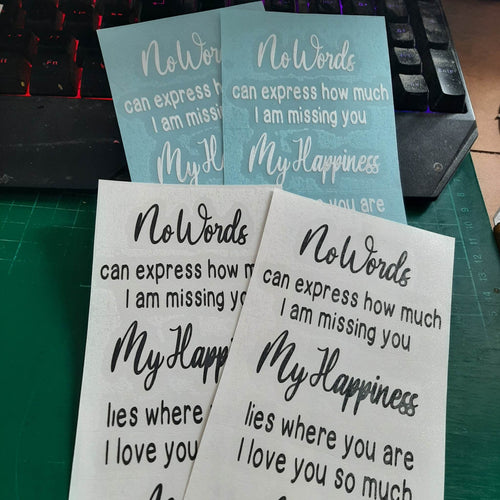 No Words
can express how much
I am missi
My Ha
No Words
can express how much
I am missing you
My Happiness
you are
No Words
can express how m
I am missing yo
My Happ
lies where
I love you
My
No Words
can express how much
I am missing you
My Happiness
lies where you are
I love you so much